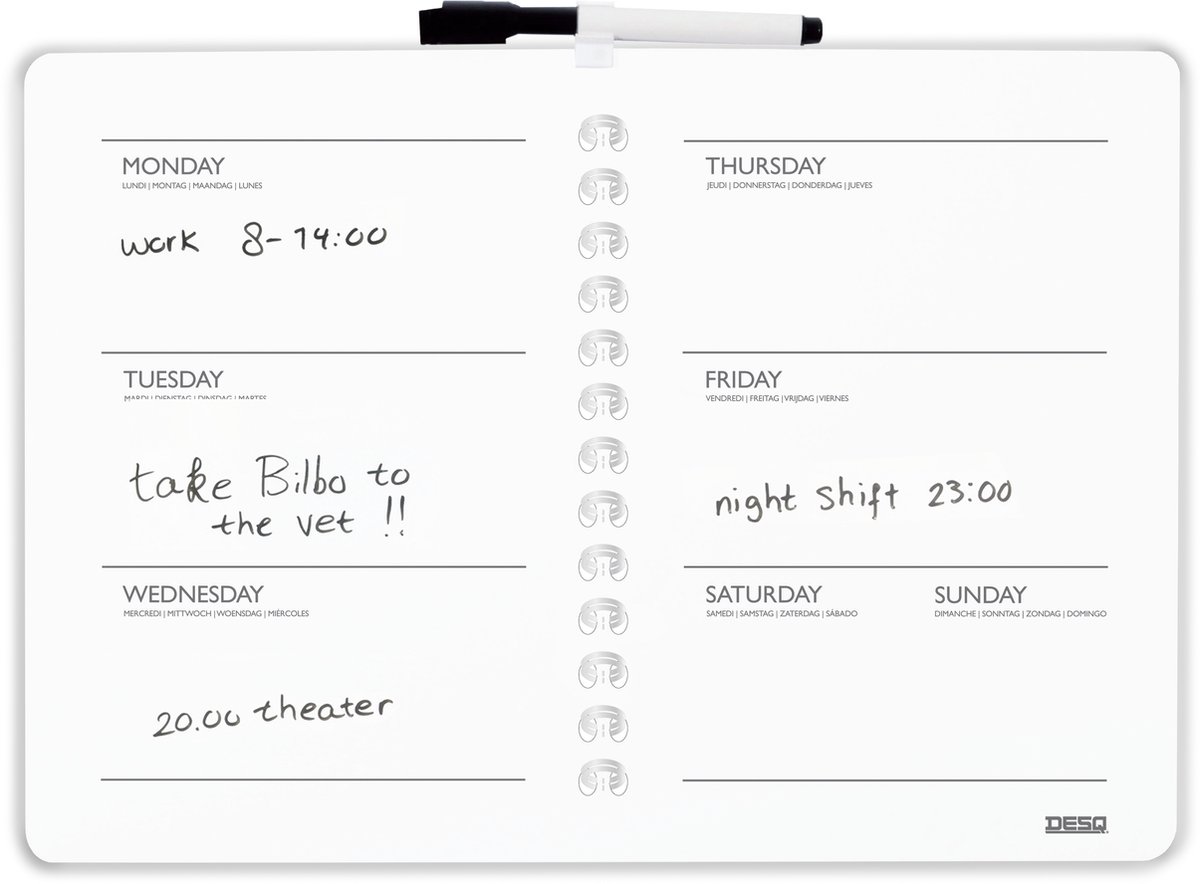 MONDAY
LUNDI | MONTAG | MAANDAG | LUNES
work 8-14:00
TUESDAY
MARDI | DIENSTAG | DINSDAG | MARTES
take Bilbo to
the vet !!
WEDNESDAY
MERCREDI | MITTWOCH | WOENSDAG | MIÉRCOLES
20.00 theater
THURSDAY
JEUDI | DONNERSTAG | DONDERDAG | JUEVES
FRIDAY
VENDREDI | FREITAG | VRIJDAG | VIERNES
night shift 23:00
SATURDAY
SAMEDI | SAMSTAG | ZATERDAG | SÁBADO
SUNDAY
DIMANCHE | SONNTAG | ZONDAG | DOMINGO
DESQ